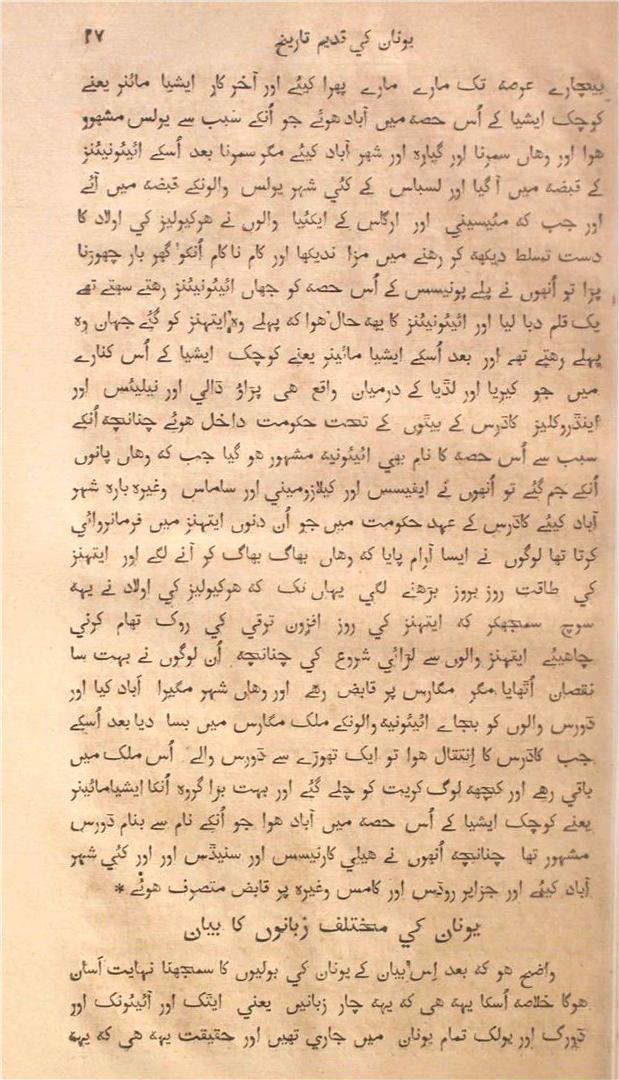 یونان کي قدیم تاریخ ۲۷
بیچارے عرصہ تک مارے مارے پھرا کیئے اور آخر کار ایشیا مائنر یعنے
کوچک ایشیا کے اُس حصہ میں آباد ہوئے جو اُنکے سبب سے یولس مشہور
ہوا اور وہاں سمرنا اور گیارہ اور شہر آباد کیئے مگر سمرنا بعد اُسکے ائیئونیئنز
کے قبضہ میں آگیا اور لسباس کے کئي شہر یولس والونکے قبضہ میں آئے
اور جب کہ مئیسیني اور ارگاس کے ایکئیا والوں نے ہرکیولیز کي اولاد کا
دست تسلط دیکھہ کر رہنے میں مزا ندیکھا اور کام ناکام اُنکو گھر بار چھوڑنا
پڑا تو اُنھوں نے پلے پونیسس کے اُس حصہ کو جہاں ائیئونیئنز رہتے سہتے تھے
یک قلم دبا لیا اور ائیئونیئنز کا یہہ حال ہوا کہ پہلے وہ ایتھنز کو گئے جہاں وہ
پہلے رہتے تھے اور بعد اُسکے ایشیا مائینر یعنے کوچک ایشیا کے اُس کنارے
میں جو کیریا اور لڈیا کے درمیان واقع ھی پڑاؤ ڈالي اور نیلیئس اور
اینڈروکلیز کاڈرس کے بیٹوں کے تحت حکومت داخل ہوئے چنانچہ اُنکے
سبب سے اُس حصہ کا نام بھي ائیئونیہ مشہور ہو گیا جب کہ وہاں پانوں
اُنکے جم گئے تو اُنھوں نے ایفیسس اور کیلازومیني اور ساماس وغیرہ بارہ شہر
آباد کیئے کاڈرس کے عہد حکومت میں جو اُن دنوں ایتھنز میں فرمانروائي
کرتا تھا لوگوں نے ایسا آرام پایا کہ وہاں بھاگ بھاگ کر آنے لگے اور ایتھنز
کي طاقت روز بروز بڑھنے لگي یہاں تک کہ ہرکیولیز کي اولاد نے یہہ
سوچ سمجھکر کہ ایتھنز کي روز افزون ترقي کي روک تھام کرني
چاہیئے ایتھنز والوں سے لڑائي شروع کي چنانچہ اُن لوگوں نے بہت سا
نقصان اُٹھایا مگر مگارس پر قابض رہے اور وہاں شہر مگیرا آباد کیا اور
ڈورس والوں کو بجاے ائیئونیہ والونکے ملک مگارس میں بسا دیا بعد اُسکے
جب کاڈرس کا اِنتقال ہوا تو ایک تھوڑے سے ڈورس والے اُس ملک میں
باقي رہے اور کچھہ لوگ کریٹ کو چلے گئے اور بہت بڑا گروہ اُنکا ایشیامائینر
یعنے کوچک ایشیا کے اُس حصہ میں آباد ہوا جو اُنکے نام سے بنام ڈورس
مشہور تھا چنانچہ اُنھوں نے ہیلي کارنیسس اور سنیڈس اور اور کئي شہر
آباد کیئے اور جزایر روڈس اور کامس وغیرہ پر قابض متصرف ہوئے *
یونان کي مختلف زبانوں کا بیان
واضح ہو کہ بعد اِس بیان کے یونان کي بولیوں کا سمجھنا نہایت آسان
ہوگا خلاصہ اُسکا یہہ ھی کہ یہہ چار زبانیں یعني ایٹک اور آئیئونک اور
ڈورک اور یولک تمام یونان میں جاري تھیں اور حقیقت یہہ ھی کہ یہہ